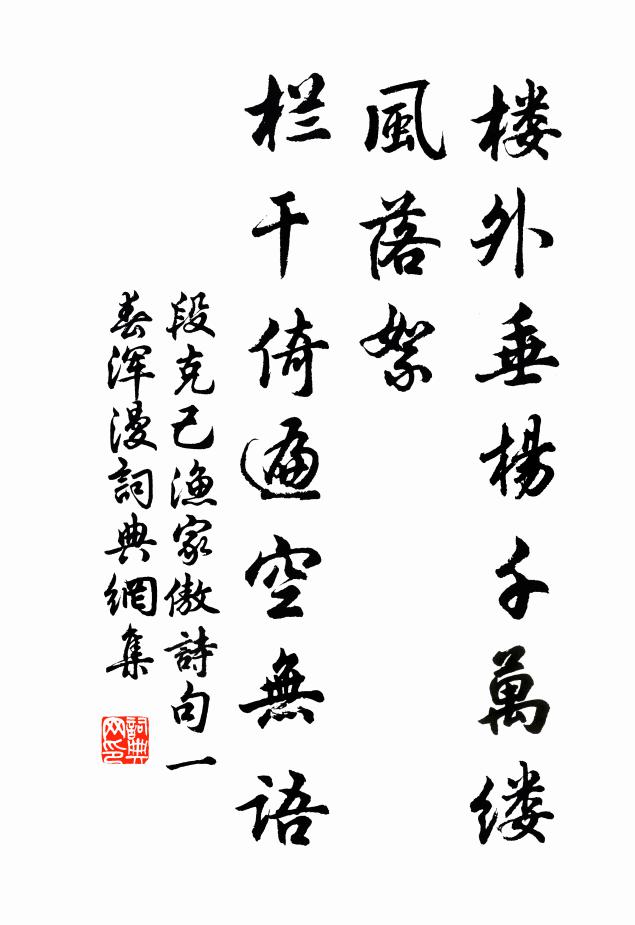 楼外垂楊千萬缕
風落絮
栏干倚遍空無語
段克己漁家傲詩句一
春浑漫詞典網集
詞典
网印